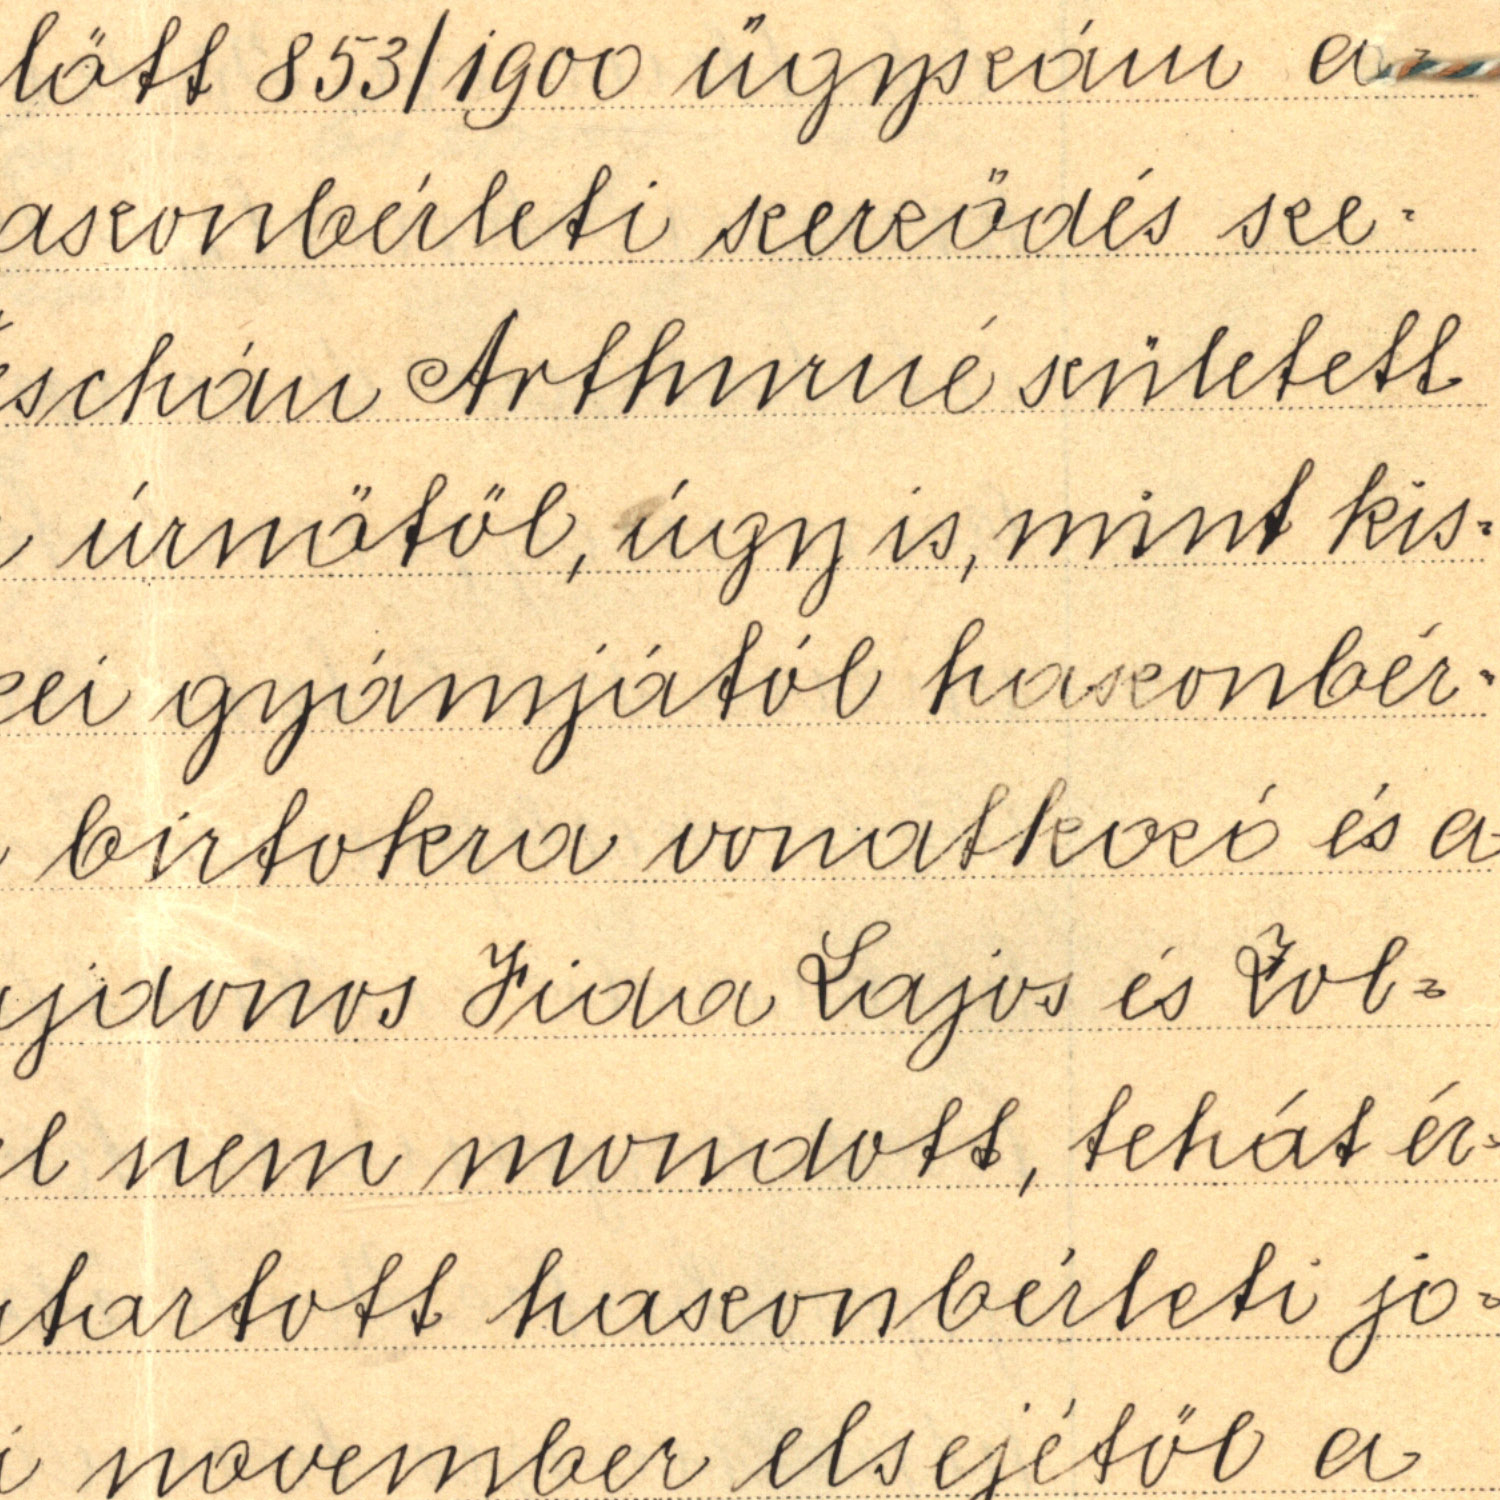 lőtt 853/1900 ügyszám a-
aszonbérleti szerződés sze-
eschán Arthurné született
úrnőtől, úgy is, mint kis-
kei gyámjától haszonbér-
birtokra vonatkozó és a
ajdonos Fida Lajos és Zol-
el nem mondott, tehát ér-
ntartott haszonbérleti jo-
i november elsejétől a